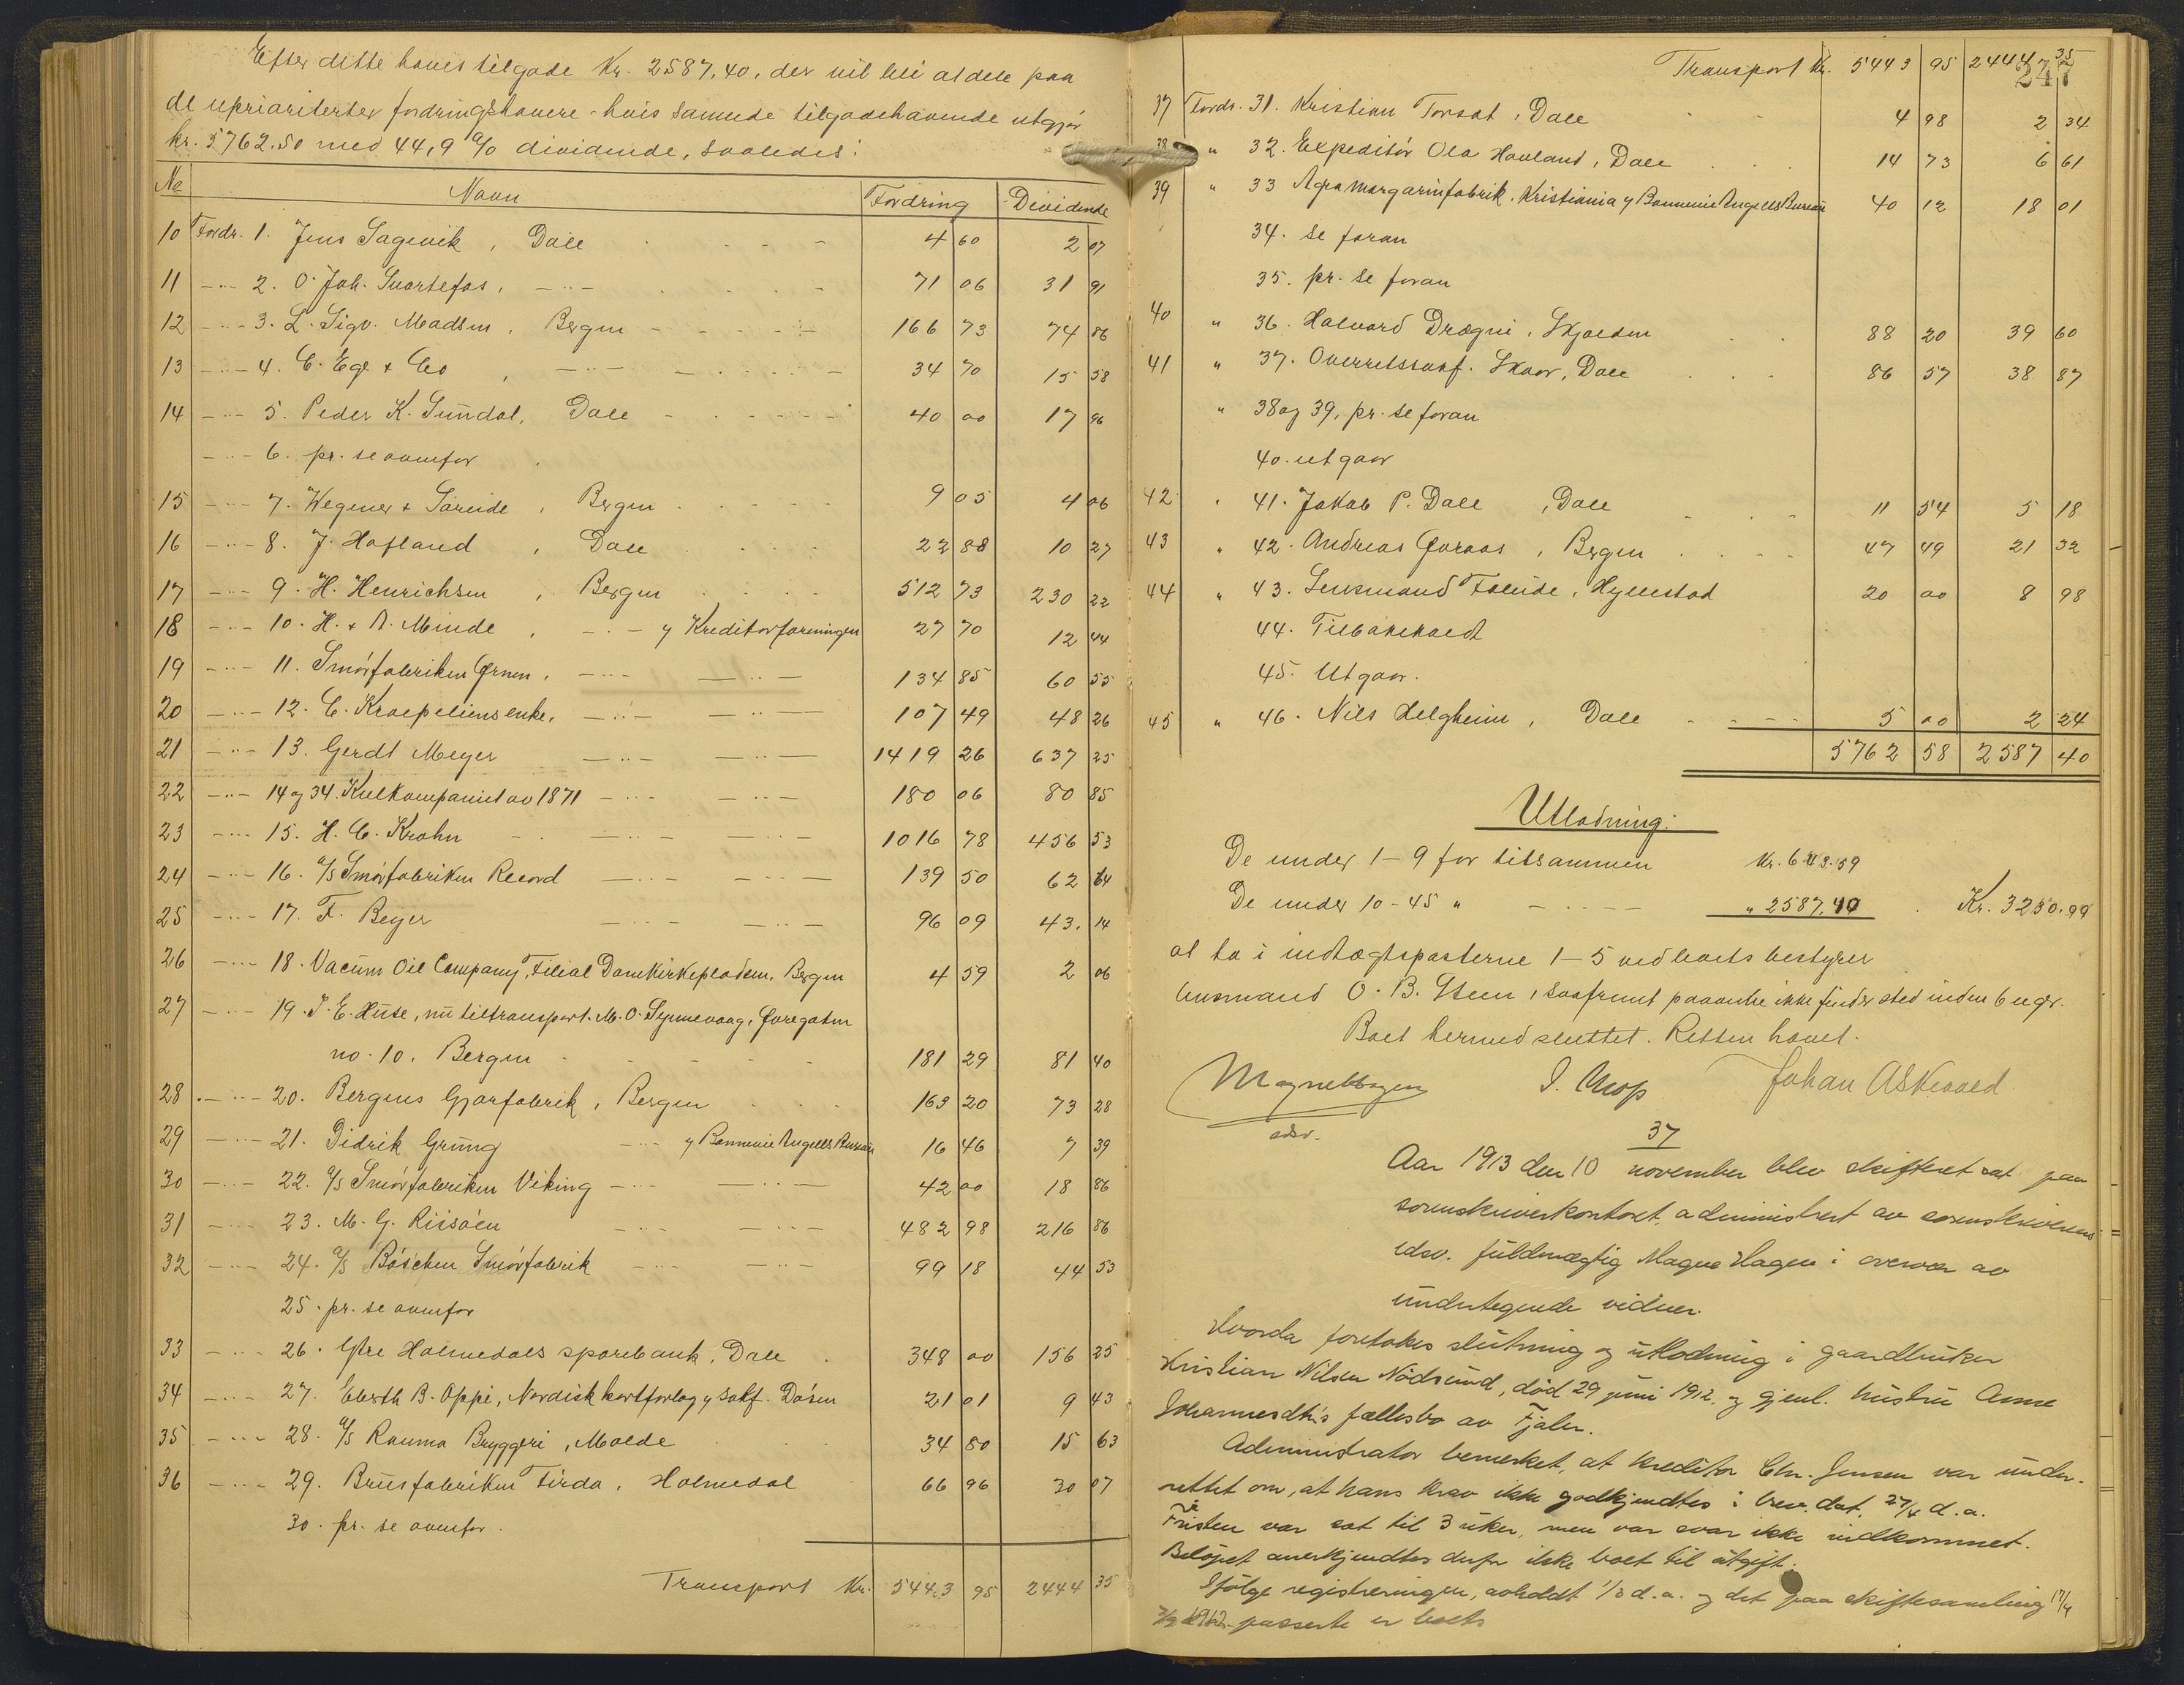 Efter dette haves tilgode Kr. 2587,40, der vil bli at dele paa
de uprioriterter fordringshavere - hvis samlede tilgodehavende utgjør
kr. 5762.50 med 44,9 % dividende, saaledes:
No Navn Fordring Dividende
10 Fordr. 1. Jens Sagevik, Dale 4 60 2 07
11 -"- 2. O. Joh. Svartefos, -"- 71 06 31 91
12 -"- 3. L. Sigv. Madsen, Bergen 166 73 74 86
13 -"- 4. C. Ege & Co, -"- 34 70 15 58
14 -"- 5. Peder K. Sundal, Dale 40 00 17 96
-"- 6. pr. se ovenfor
15 -"- 7. Wegener & Søreide, Bergen 9 05 4 06
16 -"- 8. J. Hafland, Dale 22 88 10 27
17 -"- 9. H. Henrichsen, Bergen 512 73 230 22
18 -"- 10. H. & A. Minde, -"- v/ Kreditorforeningen 27 70 12 44
19 -"- 11. Smørfabriken Ørnen, -"- -"- 134 85 60 55
20 -"- 12. C. Kroepeliens enke, -"- -"- 107 49 48 26
21 -"- 13. Gerdt Meyer -"- -"- 1419 26 637 25
22 -"- 14 og 34. Kulkompaniet av 1871 -"- -"- 180 06 80 85
23 -"- 15. H. C. Krohn -"- -"- 1016 78 456 53
24 -"- 16. A/S Smørfabriken Record -"- -"- 139 50 62 64
25 -"- 17. F. Beyer -"- -"- 96 09 43. 14
26 -"- 18. Vacüm Oil Company, Filial Domkirkepladsen, Bergen 4 59 2 06
27 -"- 19. I. E. Huse, nu tiltransport. M. O. Synnevaag, Øvregaten
no. 10, Bergen 181 29 81 40
28 -"- 20. Bergens Gjærfabrik, Bergen 163 20 73 28
29 -"- 21. Didrik Grung -"- v/ Bonnevie Angells Bureau 16 46 7 39
30 -"- 22. A/S Smørfabriken Viking -"- -"- 42 00 18 86
31 -"- 23. M. G. Riisøen -"- -"- 482 98 216 86
32 -"- 24. A/S Børschen Smørfabrik -"- -"- 99 18 44 53
25. pr. se ovenfor
33 -"- 26. Ytre Holmedals sparebank, Dale 348 00 156 25
34 -"- 27. Eberth B. Oppi, Nordisk kortforlag v/ sakf. Døsen 21 01 9 43
35 -"- 28. A/S Rauma Bryggeri, Molde 34 80 15 63
36 -"- 29. Brusfabriken Firda, Holmedal 66 96 30 07
30. pr. se ovenfor.
Transport Kr. 5443 95 2444 35
247
Transport Kr. 5443 95 2444 35
37 Fordr. 31. Kristian Torsat, Dale 4 98 2 34
38 " 32. Expeditør Ola Hovland, Dale 14 73 6 61
39 " 33 Agra margarinfabrik, Kristiania v/ Bonnevie Angells Bureau 40 12 18 01
34. se foran
35. pr. se foran
40 " 36. Halvard Drægni, Skjolden 88 20 39 60
41 " 37. Overretssakf. Skaar, Dale 86 57 38 87
" 38 og 39, pr. se foran
40. utgaar
42 " 41. Jakob P. Dale, Dale 11 54 5 18
43 " 42. Andreas Øvraas, Bergen 47 49 21 32
44 " 43. Lensmand Foleide, Hyllestad 20 00 8 98
44. Tilbakekaldt
45. Utgaar.
45 " 46. Nils Helgheim, Dale 5 00 2 24
5762 58 2587 40
Utlodning:
De under 1-9 for tilsammen Kr. 643.59
De under 10-45 " -"- " 2587,40 Kr. 3230.99
at ta i indtægtsposterne 1-5 ved boets bestyrer
lensmand O. B. Steen, saafremt paaanke ikke finder sted inden 6 uger.
Boet hermed sluttet. Retten hævet.
Magne Hagen
edsv.
Johan Askevold
37
Aar 1913 den 10 november blev skifteret sat paa
sorenskriverkontoret, administrert av sorenskriverens
edsv. fuldmægtig Magne Hagen i overvær av
undertegnede vidner.
Hvorda foretokes slutning og utlodning i gaardbruker
Kristian Nilsen Nødsund, død 29 juni 1912, og gjenl. hustru Anne
Johannesdtr's fællesbo av Fjaler.
Administrator bemerket, at kreditor Chr. Jensen var under-
rettet om, at hans krav ikke godkjendtes i brev dat. 27/4 d. a.
Fristen var sat til 3 uker, men var svar ikke indkommet.
Beløpet anerkjendtes derfor ikke boet til utgift.
Ifølge registreringen, avholdt 1/3 d. a. og det paa skiftesamling 17/4
passerte er boets